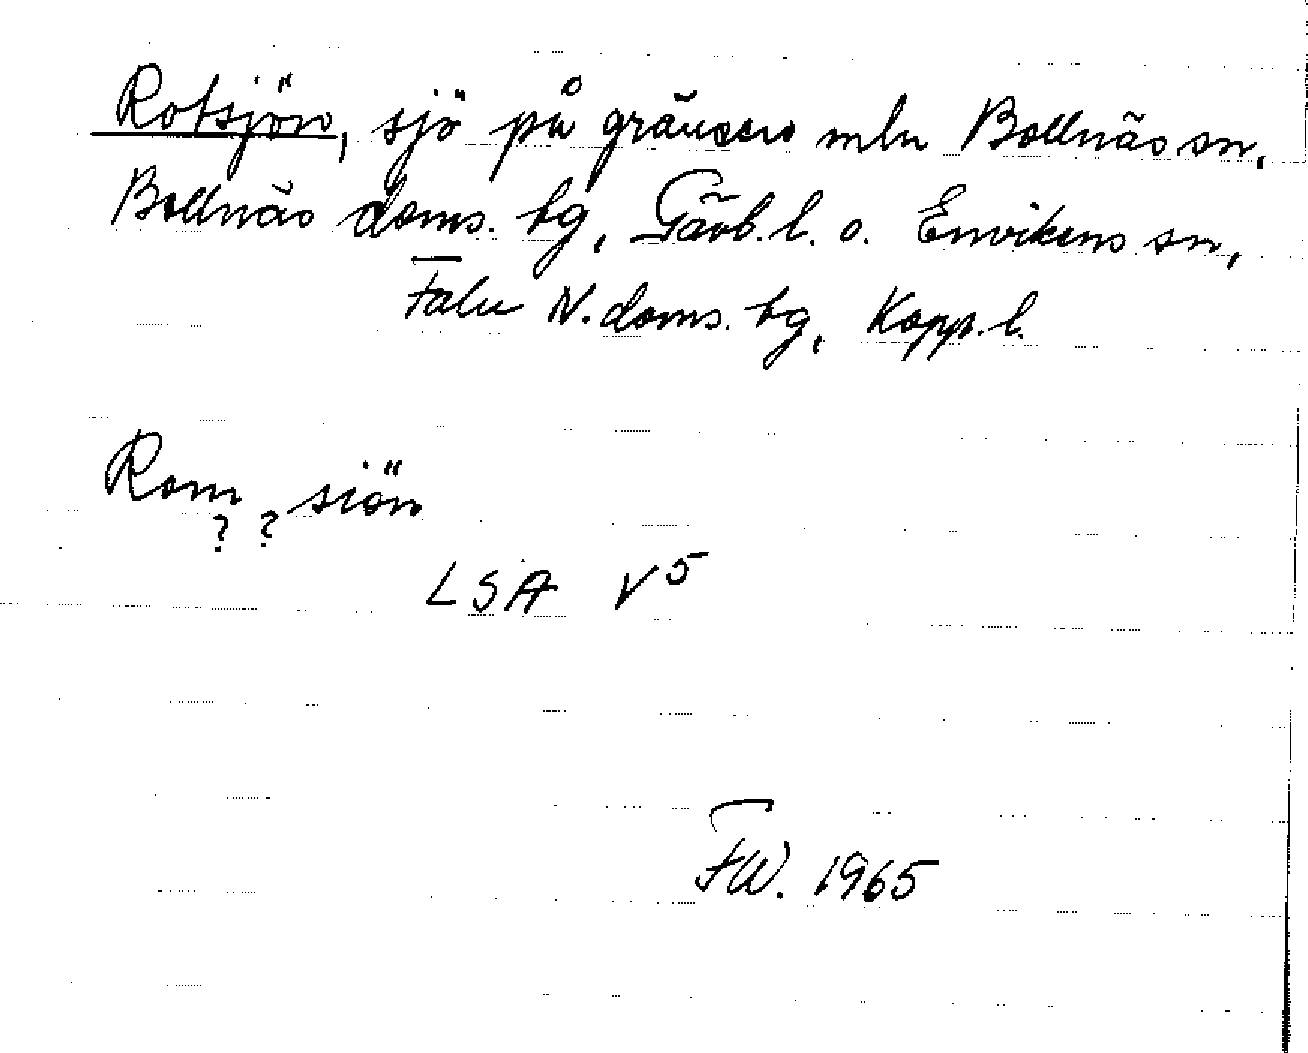 Rotsjön, sjö på gränsen mln Bollnäs sn,
Bollnäs doms. hg, Gävb. l. o. Envikens sn,
Falu N. doms. hg, Kopp. l.
Rom siön
? ?
LSA V5
FW. 1965